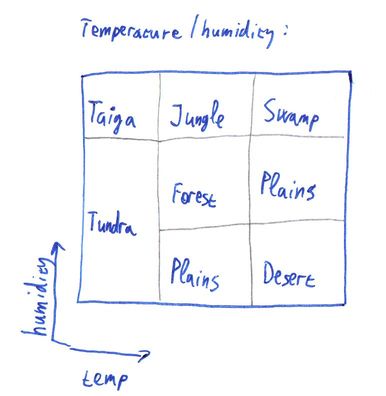 Temperature/humidity:
Taiga Jungle Swamp
Forest Plains
Tundra
Plains Desert
humidity
temp